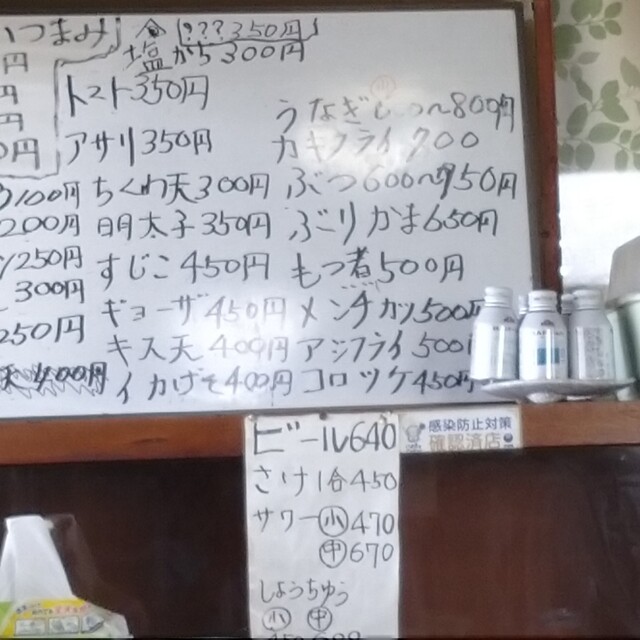 いつまみ
円
円
円
0円
100円
200円
250円
300円
250円
400円
???350円
塩から300円
トマト350円
アサリ350円
ちくわ天300円
明太子350円
すじこ450円
ギョーザ450円
キス天400円
イカげそ400円
うなぎ ～800円
カキフライ700
ぶつ600～750円
ぶりかま650円
もつ煮500円
メンチカツ500円
アジフライ500
コロッケ450円
ビール640
さけ1合450
サワー小470
中670
しょうちゅう
小 中
感染防止対策
確認済店